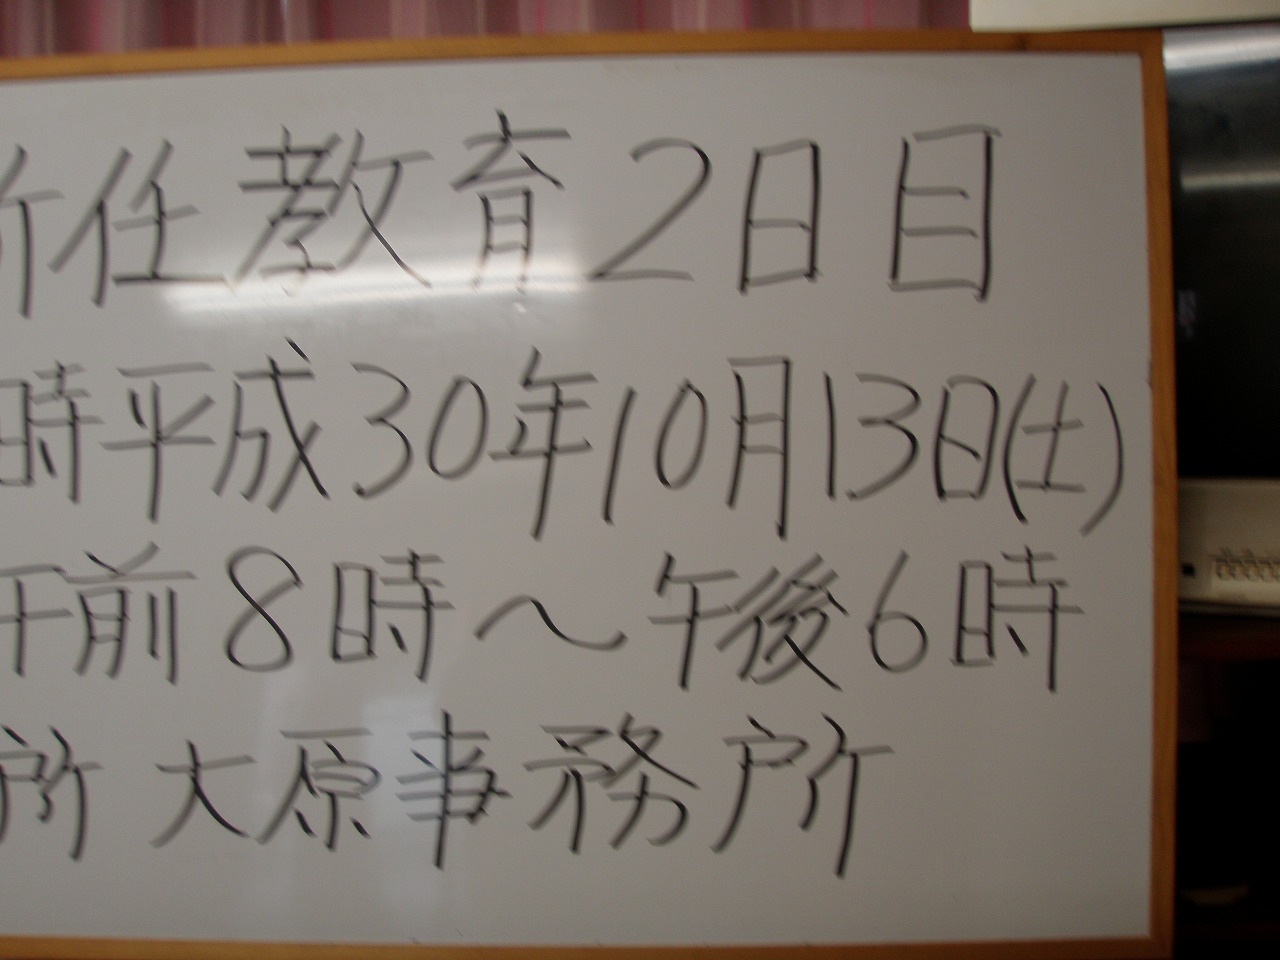 任教育2日目
時平成30年10月13日(土)
午前8時～午後6時
所大原事務所